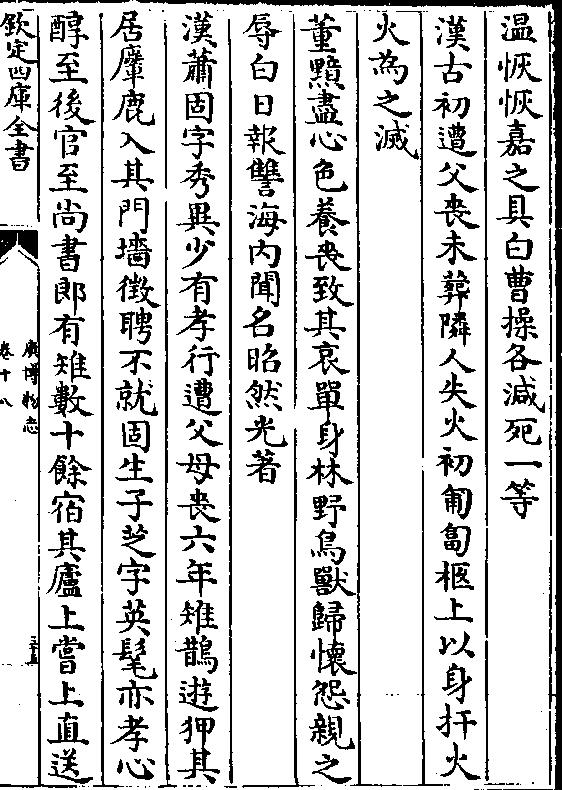 温恢恢嘉之具白曹操各減死一等
漢古初遭父喪未葬隣人失火初匍匐柩上以身扞火
火為之滅
董黯盡心色養喪致其哀單身林野鳥獸歸懷怨親之
辱白日報讐海内聞名昭然光著
漢蕭固字秀異少有孝行遭父母喪六年雉鵲遊狎其
居麞鹿入其門墻徵聘不就固生子芝字英髦亦孝心
醇至後官至尚書郎有雉數十餘宿其廬上當上直送
欽定四庫全書
廣博物志
卷十八